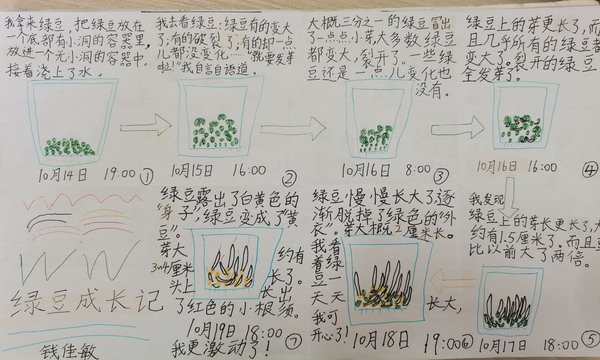 我拿来绿豆，把绿豆放在
一个底部有小洞的容器里，
放进一个无小洞的容器中。
接着浇上了水。
10月14日 19:00 ①
我去看绿豆：绿豆有的变大
了；有的破裂了；有的却一点
儿都没变化……“就要发芽
啦！”我自言自语道。
10月15日 16:00 ②
大概三分之一的绿豆冒出
了一点点小芽，大多数绿豆
都变大，裂开了。一些绿
豆还是一点儿变化也
没有。
10月16日 8:00 ③
绿豆上的芽更长了，而
且几乎所有的绿豆都
变大了。裂开的绿豆
全发芽了。
10月16日 16:00 ④
我发现
绿豆上的芽长更长了，大
约有1.5厘米了。而且豆
比以前大了两倍。
10月17日 18:00 ⑤
绿豆慢慢长大了，逐
渐脱掉了绿色的“外
衣”。芽大概2厘米长。
我看着绿豆一天天
长大，
我可开心了！
10月18日 19:00 ⑥
绿豆露出了白黄色的
“身子”，绿豆变成了“黄
豆”。
芽大约有
3～4厘米长了。
头上长出
了红色的小根须。
10月19日 18:00
我更激动了！ ⑦
绿豆成长记
钱佳敏